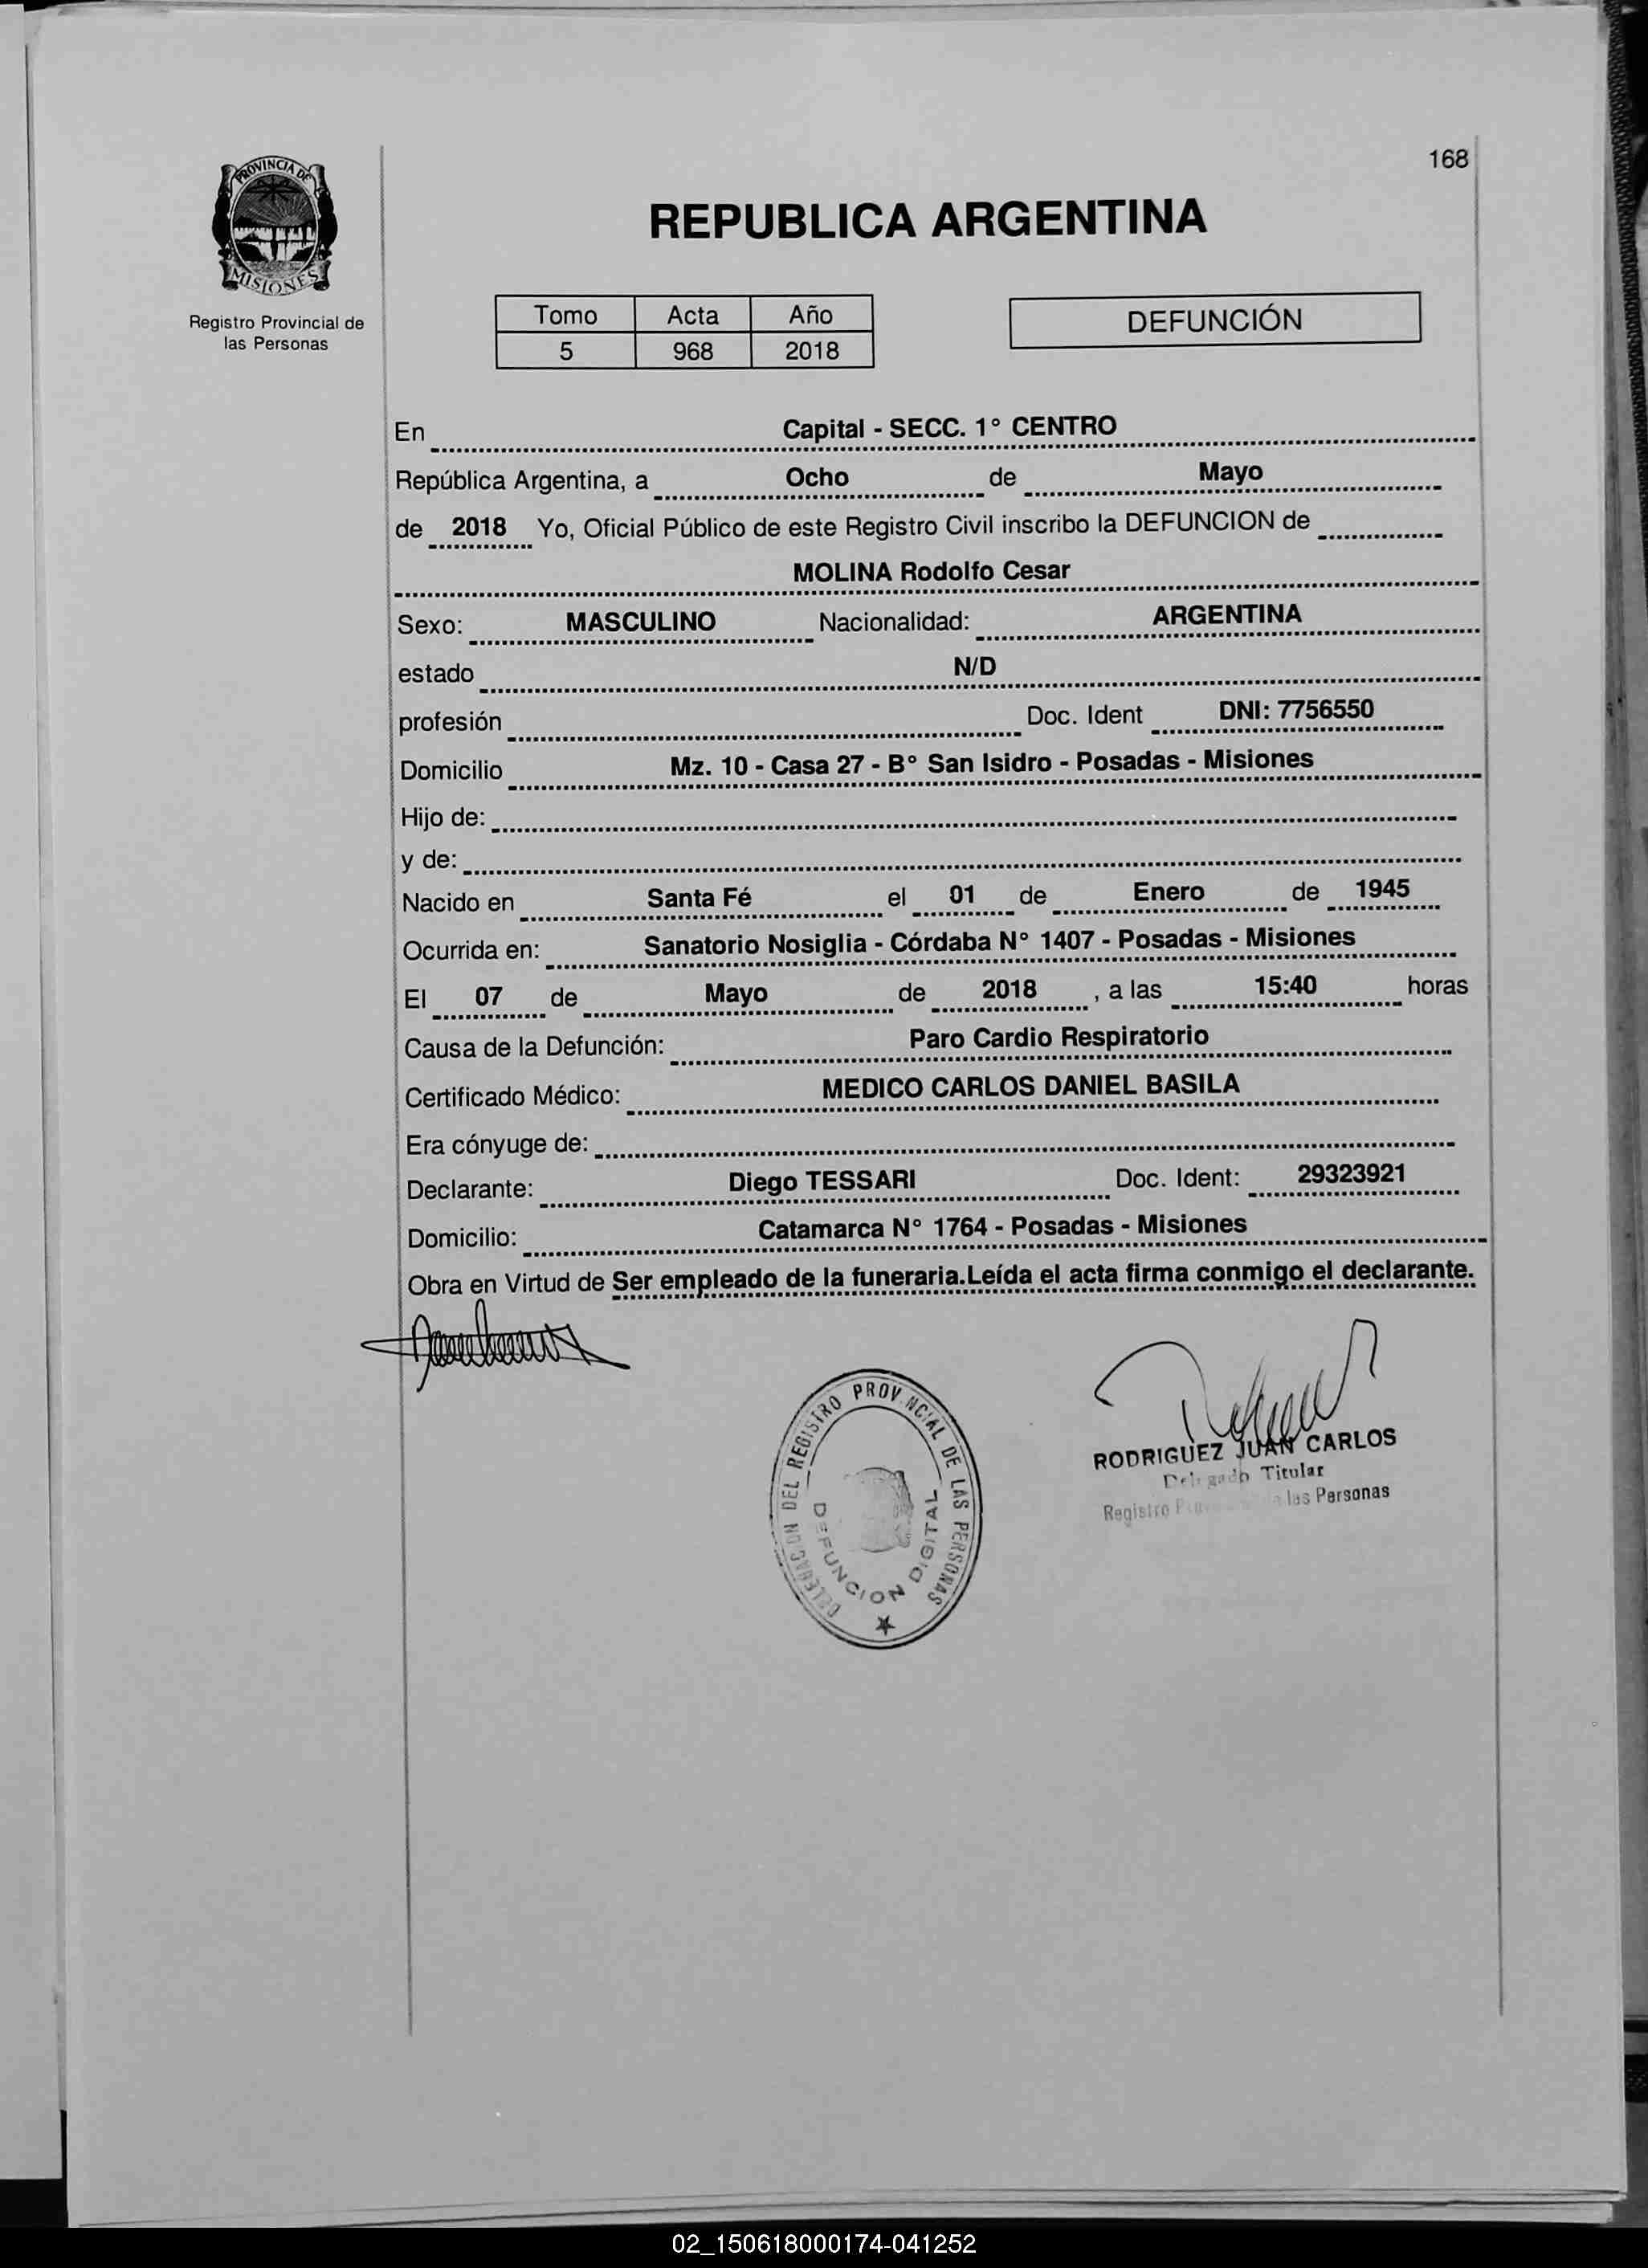 168
PROVINCIA DE
MISIONES
Registro Provincial de
las Personas
REPUBLICA ARGENTINA
Tomo Acta Año
5 968 2018
DEFUNCIÓN
En Capital - SECC. 1° CENTRO
República Argentina, a Ocho de Mayo
de 2018 Yo, Oficial Público de este Registro Civil inscribo la DEFUNCION de
MOLINA Rodolfo Cesar
Sexo: MASCULINO Nacionalidad: ARGENTINA
estado N/D
profesión Doc. Ident DNI: 7756550
Domicilio Mz. 10 - Casa 27 - B° San Isidro - Posadas - Misiones
Hijo de:
y de:
Nacido en Santa Fé el 01 de Enero de 1945
Ocurrida en: Sanatorio Nosiglia - Córdaba N° 1407 - Posadas - Misiones
El 07 de Mayo de 2018 , a las 15:40 horas
Causa de la Defunción: Paro Cardio Respiratorio
Certificado Médico: MEDICO CARLOS DANIEL BASILA
Era cónyuge de:
Declarante: Diego TESSARI Doc. Ident: 29323921
Domicilio: Catamarca N° 1764 - Posadas - Misiones
Obra en Virtud de Ser empleado de la funeraria.Leída el acta firma conmigo el declarante.
DELEGACION DEL REGISTRO PROVINCIAL DE LAS PERSONAS
DEFUNCION DIGITAL
RODRIGUEZ JUAN CARLOS
Delegado Titular
Registro las Personas
02_150618000174-041252